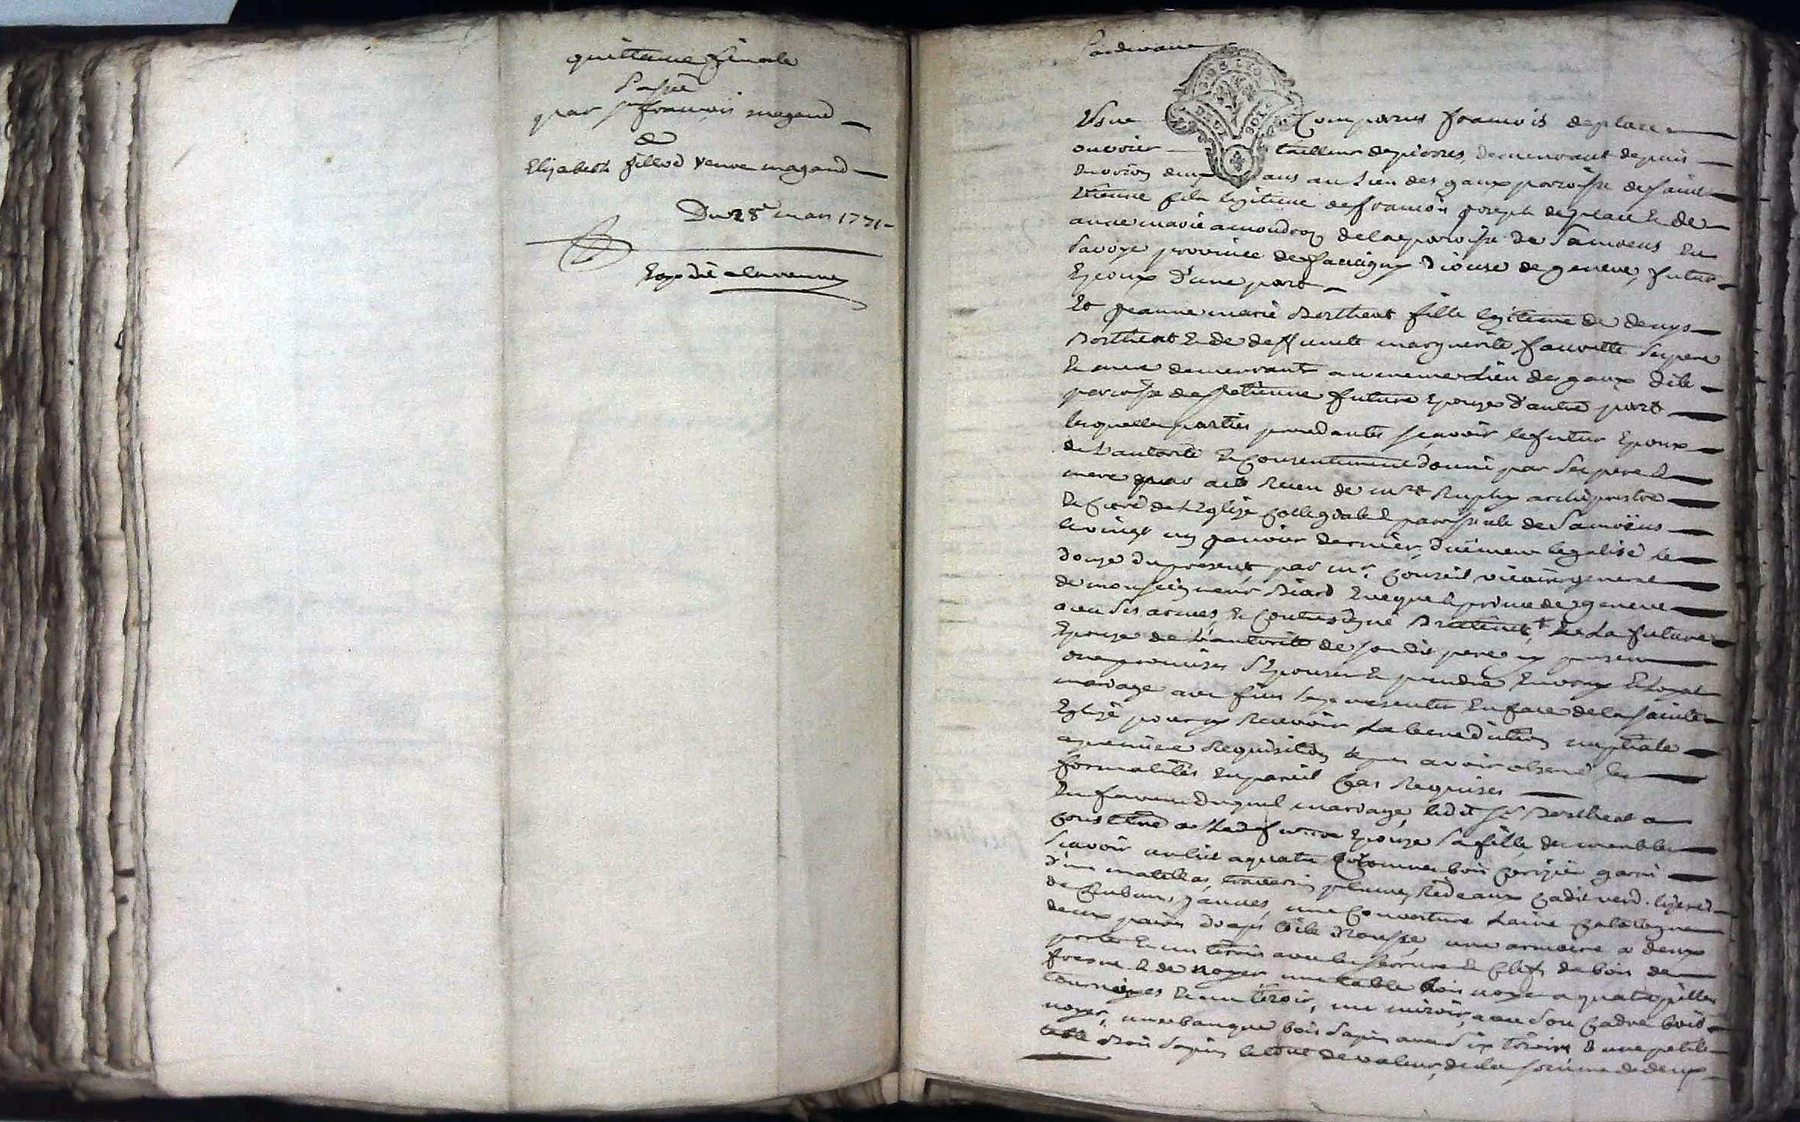 quittance finale
Passée
par Sr françois magand
&
Elizabeth fillod veuve magand
Du 28e mars 1771
Expédié
Pardevant
Comparus françois deplace
ouvrier tailleur de pierres, demeurant depuis
environ deux ans au Lieu des gaux parroisse de saint
Etienne fils légitime de françois joseph deplace & de
anne marie amoudruz de la paroisse de Samoens en
Savoye province de faucigny Diocese de geneve, futur
Epoux d'une part
Et jeanne marie Bertheat fille légitime de denys
Bertheat & de deffunte marguerite fauvette Ses pere
& mere demeurant au meme Lien des gaux dite
paroisse de St etienne future Epouze d'autre part
lesquelles parties procedantes scavoir le futur Epoux
de L'autorité & Consentement donné par Ses pere &
mere par acte Receu de Mre Ruphy archiprestre
& Curé de L'Eglize Collegiale & paroissiale de Samoëns
le vingt un janvier dernier, duement legalisé le
douze du present par Mr Conseil vicaire general
de monseigneur Biord Eveque & prince de geneve
avec Ses armes, & Contresigné & La future
Epouze de L'autorité de son dit pere icy present
ont promis S'Epouser & prendre En vray & Loyal
mariage aux fins Se presenter En face de la Sainte
Eglize pour y Recevoir La benediction nuptiale
a premiere Requisition apres avoir observé les
formalités En pareil Cas Requises
En faveur Duquel mariage, ledit Sr Bertheat a
Constitué a Lad. future Epouze Sa fille, des meubles
Scavoir un lit a quatre Colonnes bois Cerizier garni
d'un matelas, traversin plume, Rideaux Cadis verd
de Ruban jaunes, une Couverture Laine Catalogne
deux paires draps toile Rousse, une armoire a deux
portes & un tiroir avec les serrure & Clefs de bois de
fresne & de noyer une table bois noyer a quatre pilliers
tournées & un tiroir, un miroir, avec Son Cadre bois
noyer, une banque bois Sapin avec Six tiroirs & une petite
table Bois Sapin le tout de valeur, de la somme de deux